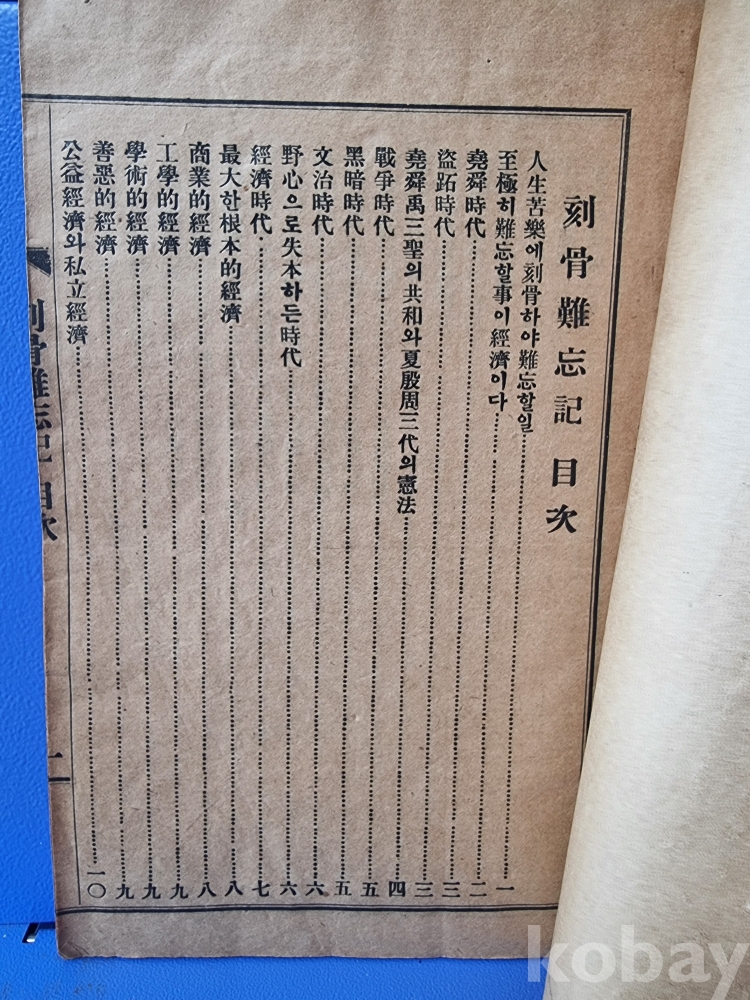 刻骨難忘記 目次
人生苦樂에刻骨하야難忘할일……一
至極히難忘할事이經濟이다……二
堯舜時代……三
盜跖時代……三
堯舜禹三聖의共和와夏殷周三代의憲法……四
戰爭時代……五
黑暗時代……五
文治時代……六
野心으로失本하든時代……六
經濟時代……七
最大한根本的經濟……八
商業的經濟……八
工學的經濟……九
學術的經濟……九
善惡的經濟……九
公益經濟와私立經濟……一〇
刻骨難忘記 目次
kobay